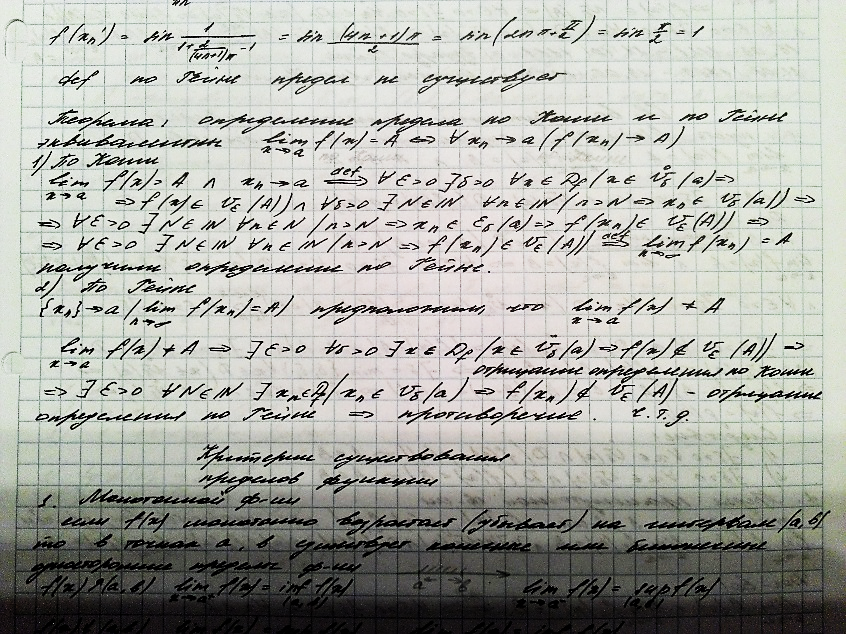 f(xₙ') = sin 1/(1+2/((4n+1)π) -1) = sin (4n+1)π/2 = sin(2πn+π/2) = sin π/2 = 1
def по Гейне предел не существует
Теорема: определение предела по Коши и по Гейне
эквивалентны lim x→a f(x) = A ⇔ ∀ xₙ → a (f(xₙ) → A)
1) По Коши
lim x→a f(x) = A ∧ xₙ → a def⇒ ∀ε>0 ∃δ>0 ∀x∈D_f (x ∈ V̊_δ(a) ⇒
⇒ f(x) ∈ V_ε(A)) ∧ ∀δ>0 ∃N∈ℕ ∀n∈ℕ (n>N ⇒ xₙ ∈ V_δ(a)) ⇒
⇒ ∀ε>0 ∃N∈ℕ ∀n∈N (n>N ⇒ xₙ ∈ ε_δ(a) ⇒ f(xₙ) ∈ V_ε(A)) ⇒
⇒ ∀ε>0 ∃N∈ℕ ∀n∈ℕ (n>N ⇒ f(xₙ) ∈ V_ε(A)) def⇒ lim n→∞ f(xₙ) = A
получили определение по Гейне.
2) По Гейне
{xₙ} → a (lim n→∞ f(xₙ) = A) предположим, что lim x→a f(x) ≠ A
lim x→a f(x) ≠ A ⇒ ∃ε>0 ∀δ>0 ∃x∈D_f (x ∈ V̊_δ(a) ⇒ f(x) ∉ V_ε(A)) ⇒
отрицание определения по Коши
⇒ ∃ε>0 ∀N∈ℕ ∃xₙ∈D_f (xₙ ∈ V_δ(a) ⇒ f(xₙ) ∉ V_ε(A) - отрицание
определения по Гейне ⇒ противоречие. ч.т.д.
Критерии существования
пределов функции
1. Монотонной ф-ии
если f(x) монотонно возрастает (убывает) на интервале (a,b)
то в точках a, b существует конечные или бесконечные
односторонние пределы ф-ии
f(x)↑(a,b) lim f(x) = inf f(x) (a,b) a b lim f(x) = sup f(x) (a,b)